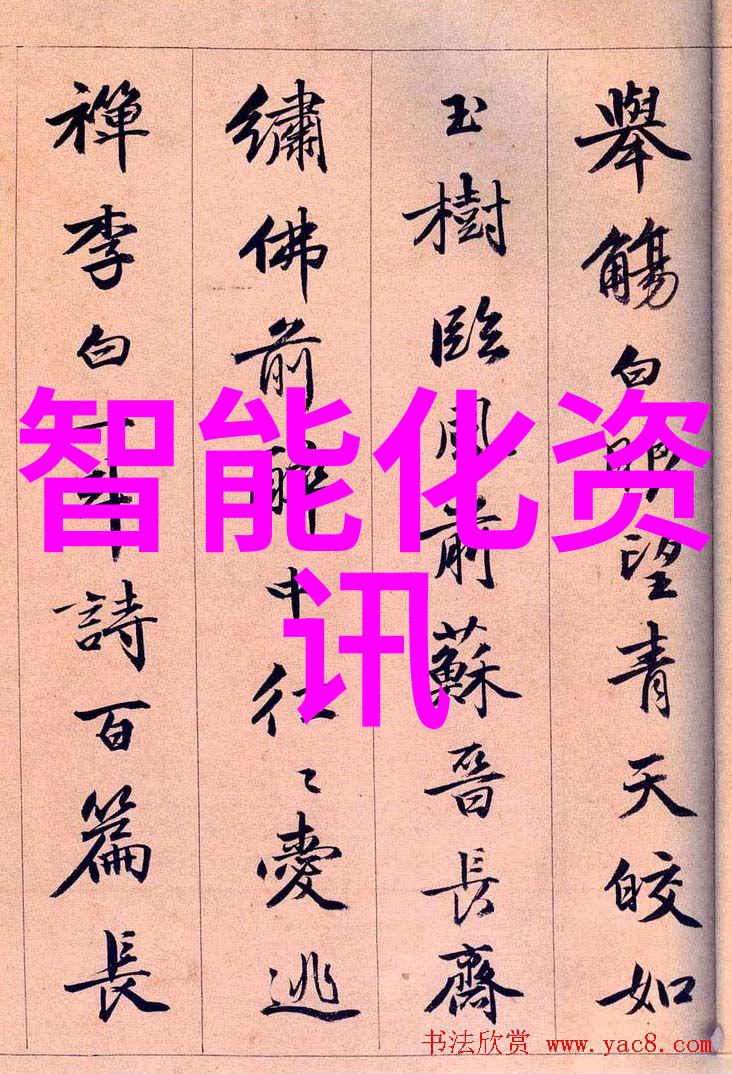 舉觴白眼望青天皎如
玉樹臨風前蘇晉長齋
繡佛前醉中往〻愛逃
禪李白一斗詩百篇長
智能化资
讯
书法欣赏 www.yac8.com